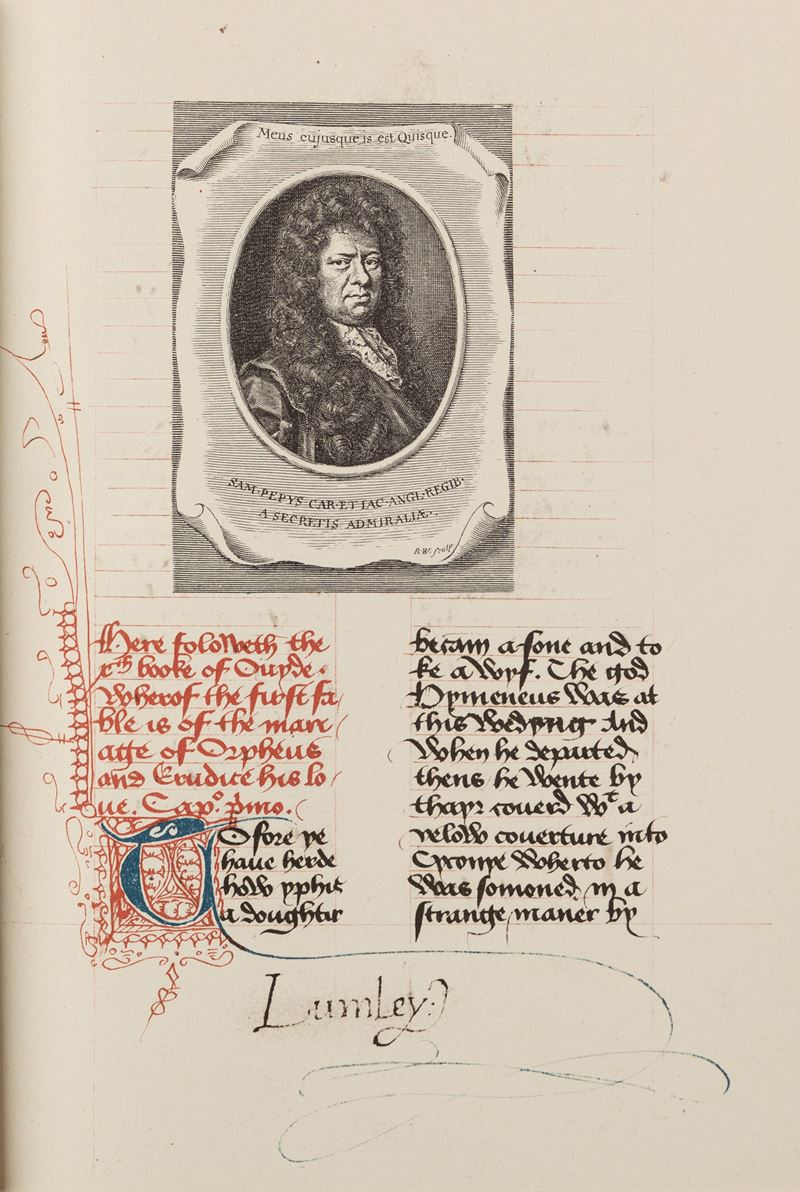 Mens cujusque is est Quisque.
SAM·PEPYS·CAR·ET IAC·ANGL·REGIB·
A SECRETIS ADMIRALIÆ·
R.W. sculp
Here foloweth the
xth booke of Ouyde·
Wherof the first fa/
ble is of the mari/
age of Orpheus
and Erudice his lo/
ue. Capo. pmo.
Tofore ye
haue herde
how yphis
a doughter
becam a sone and to
ke a wyf. The god
Hymeneus was at
this wedyng And
when he departed
thens he wente by
thayr couerd wt a
yelow couerture in to
Cyconye wherto he
was somoned in a
strange maner by
Lumley